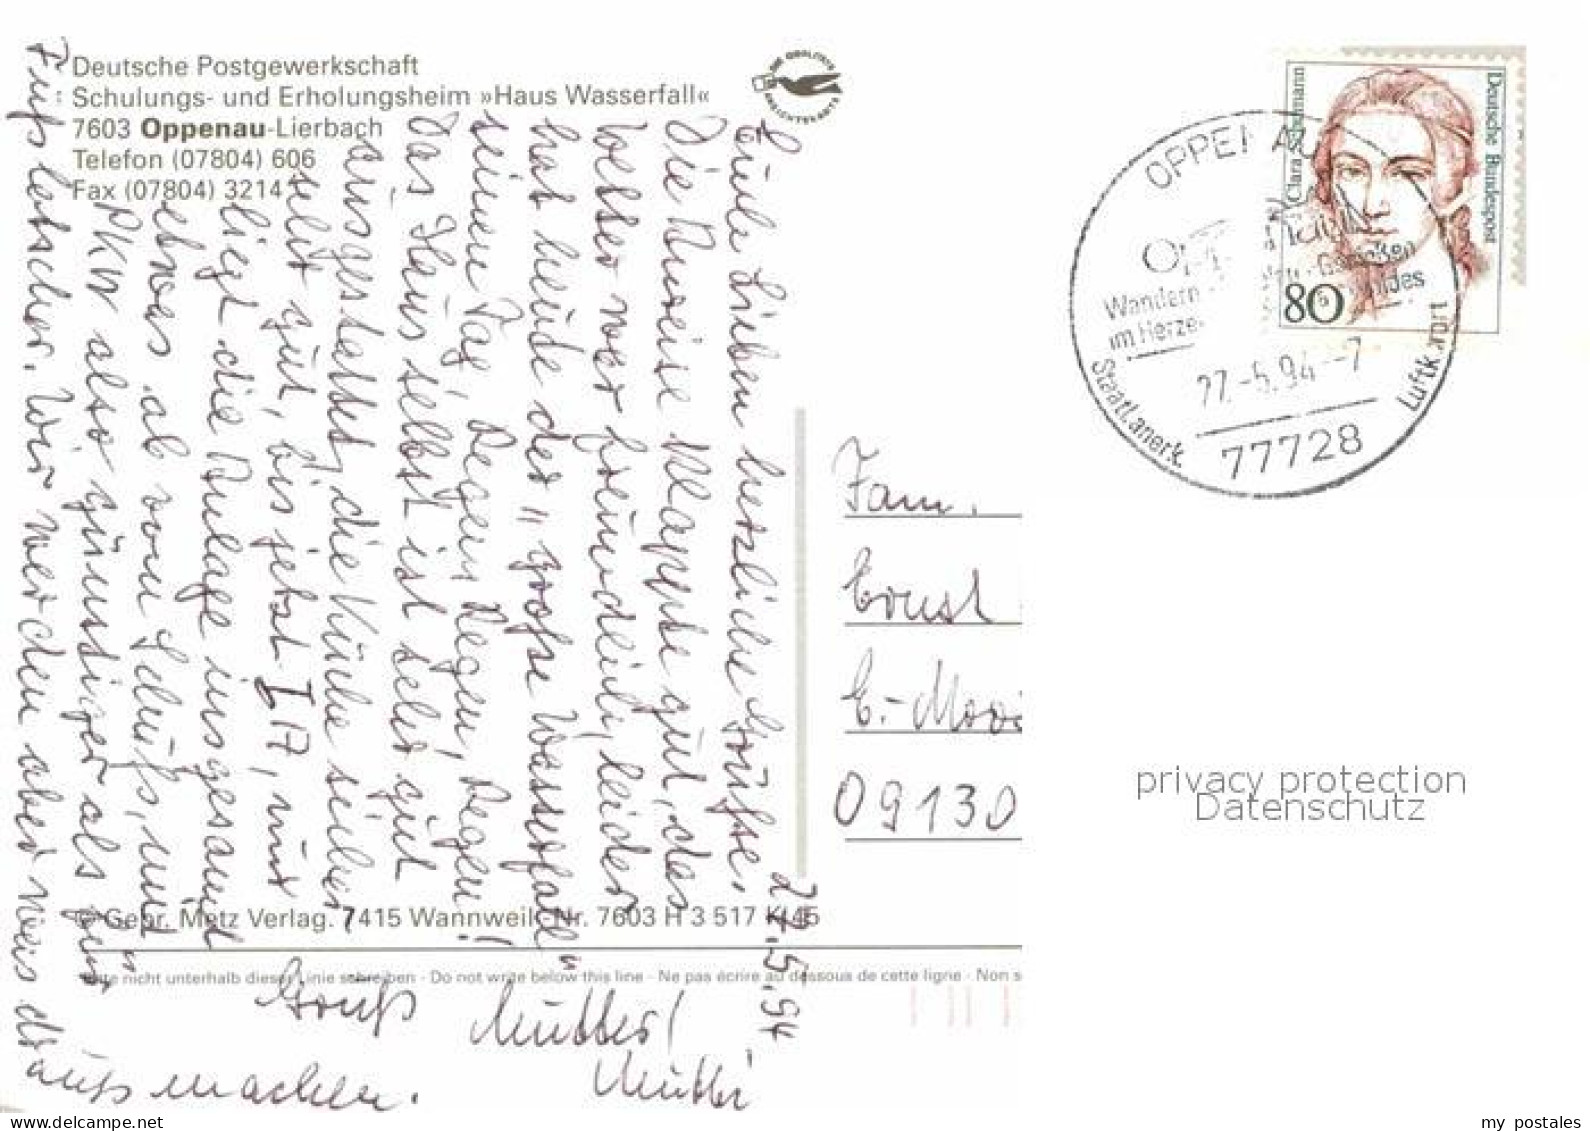 Deutsche Postgewerkschaft
Schulungs- und Erholungsheim »Haus Wasserfall«
7603 Oppenau-Lierbach
Telefon (07804) 606
Fax (07804) 3214
DIE QUALITÄTS
ANSICHTSKARTE
27.5.94
Lieben herzliche Grüße.
Die Anreise klappte gut, das
Wetter war freundlich, leider
hat heute der "große Wasserfall"
seinen Tag, Regen, Regen, Regen!
Das Haus selbst ist sehr gut
ausgestattet, die Küche sicher
sehr gut, bis jetzt I A, nur
liegt die Anlage insgesamt
etwas ab vom Schuß, und
PKW also günstiger als für
Fußlatscher. Wir werden aber was
draus machen.
Gruß Mutter/
Mutti
© Gebr. Metz Verlag. 7415 Wannweil - Nr. 7603 H 3 517 K 45
Bitte nicht unterhalb dieser Linie schreiben - Do not write below this line - Ne pas écrire au dessous de cette ligne - Non s
Fam.
Ernst
E.-
09130
Clara Schumann
Deutsche Bundespost
80
OPPENAU
Wandern
im Herze
27.-5.94--7
77728
Staatl.anerk. Luftk.
privacy protection
Datenschutz
my postales